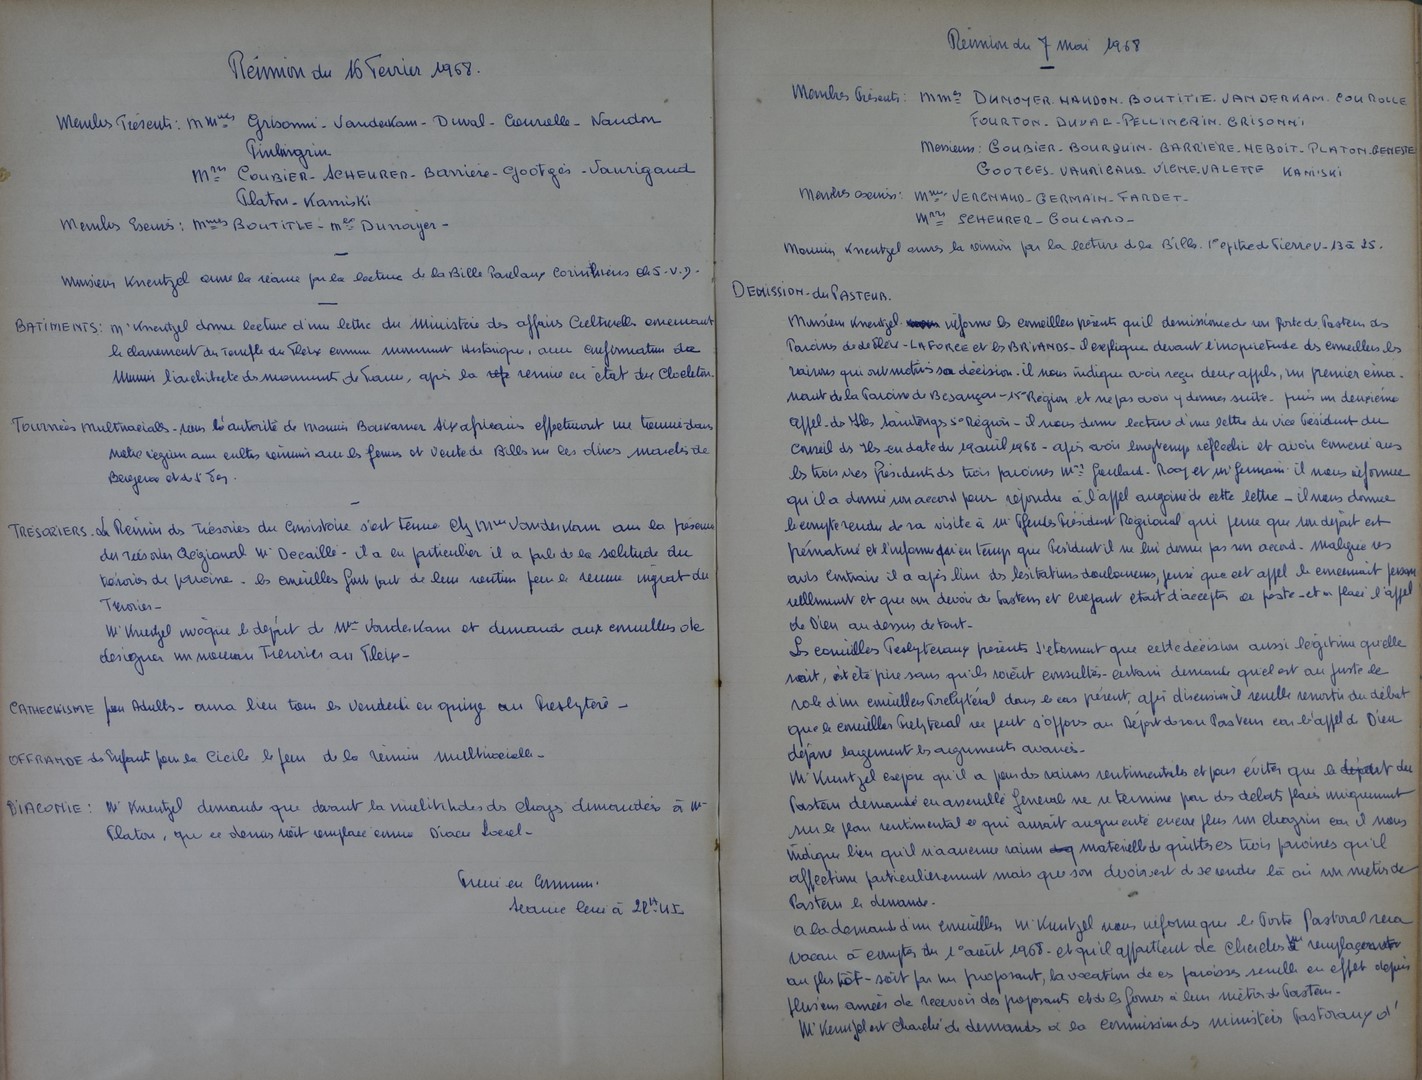 Réunion du 16 Fevrier 1968.
Membres Présents: Mmes Grisonni - Vanderkam - Duval - Courolle - Naudon
Mrs COUBIER - SCHEURER - Barrière - Gootgès - Vaurigaud
Platon - Kaniski
Membres Excusés: Mmes BOUTITIE - Dunoyer -
Monsieur Kneutzel ouvre la séance par la lecture de la Bible Corinthiens ch 5. v. 9 -
BATIMENTS: Mr Kneutzel donne lecture d'une lettre du Ministère des affaires Culturelles concernant
le classement du Temple du Fleix comme monument Historique, avec confirmation de
l'architecte des monuments de France, après la remise en état du Clocheton.
Tournées Multiraciales - sous l'autorité de Six africains effectueront une tournée dans
notre région avec cultes réunions avec les femmes et vente de Bibles sur les divers marchés de
Bergerac et de
TRESORIERS. La Réunion des Trésoriers du Consistoire s'est tenue chez Mme Vanderkam avec la présence
du trésorier Régional Mr Decaillé - il a en particulier il a parlé de la solitude du
trésorier de paroisse - les conseillers font part de leur pour le ingrat du
Trésorier -
Mr Kneutzel évoque le départ de Mme Vanderkam et demande aux conseillers de
designer un nouveau Trésorier au Fleix -
CATHECHISME pour Adultes - aura lieu tous les Vendredi en quinze au Presbytère -
OFFRANDE des Enfants pour la Cicile le jour de la réunion multiraciale -
DIACONIE: Mr Kneutzel demande que devant la multitude des charges demandées à Mr
Platon, que ce dernier soit remplacé comme Diacre local -
Prière en Commun.
Séance levée à 22H45
Réunion du 7 mai 1968
Membres Présents: Mmes DUNOYER. NAUDON. BOUTITIE. VANDERKAM. COUROLLE
FOURTON - DUVAL - PELLINGRIN. GRISONNI
Messieurs: GOUBIER - BOURQUIN - BARRIERE - MEBOIT - PLATON. GENESTE
GOOTGES. VAURIGAUD. VIGNE. VALETTE KANISKI
Membres excusés: Mmes VERGNAUD - GERMAIN - FARDET -
Mrs SCHEURER - GOULARD -
Monsieur Kneutzel ouvre la réunion par la lecture de la Bible. 1e epitre de Pierre V - 13 à 25.
DEMISSION du PASTEUR.
Monsieur Kneutzel informe les conseillers présents qu'il demissionne de son Poste de Pasteur des
Paroisses de le Fleix - LA FORCE et les BRIANDS - il explique devant des conseillers les
raisons qui ont motivé sa décision. il nous indique avoir reçu deux appels, un premier éma-
nant de la Paroisse de Besançon - Région et ne pas avoir y donner suite - puis un deuxième
appel - de Iles Saintonge 5e Région - il nous donne lecture d'une lettre du vice Président du
Conseil des Iles en date du 19 avril 1968 - après avoir longtemps réfléchi et avoir conversé avec
les trois vices Présidents des trois paroisses Mrs Goulard - Rooy et Mr Germain il nous informe
qu'il a donné son accord pour répondre à l'appel de cette lettre - il nous donne
le compte rendu de sa visite à Mr Président Régional qui pense que son départ est
prématuré et l'informe qu'en temps que Président il ne lui donne pas son accord. malgré ces
avis contraire il a après bien des hésitations douloureuses, pensé que cet appel le concernait person-
nellement et que son devoir de Pasteur et croyant était d'accepter ce poste - et en place l'appel
de Dieu au dessus de tout -
Les conseillers Presbyteraux présents s'étonnent que cette décision aussi légitime qu'elle
soit, ait été prise sans qu'ils soient consultés - certains demande quel est au juste le
rôle d'un conseiller Presbytéral dans le cas présent, après discussion il semble ressortir du débat
que le conseiller Presbyteral ne peut s'opposer au Départ de son Pasteur car l'appel de Dieu
dépasse largement les arguments avancés -
Mr Kneutzel expose qu'il a pour des raisons sentimentales et pour éviter que le départ du
Pasteur demandé en assemblée Générale ne se termine par des débats placés uniquement
sur le plan sentimental ce qui aurait augmenté encore plus son chagrin car il nous
indique bien qu'il n'a aucune raison matérielle de quitter ces trois paroisses qu'il
affectionne particulièrement mais que son devoir est de se rendre là où son métier de
Pasteur le demande.
A la demande d'un conseiller Mr Kneutzel nous informe que le Poste Pastoral sera
vacant à compter du 1er août 1968 - et qu'il appartient de chercher un remplaçant
au plus tôt - soit par un proposant, la vocation de ces paroisses semble en effet depuis
plusieurs années de recevoir des proposants et de les former à leur métier de Pasteur -
Mr Kneutzel est chargé de demander à la commission des ministères Pastoraux d'